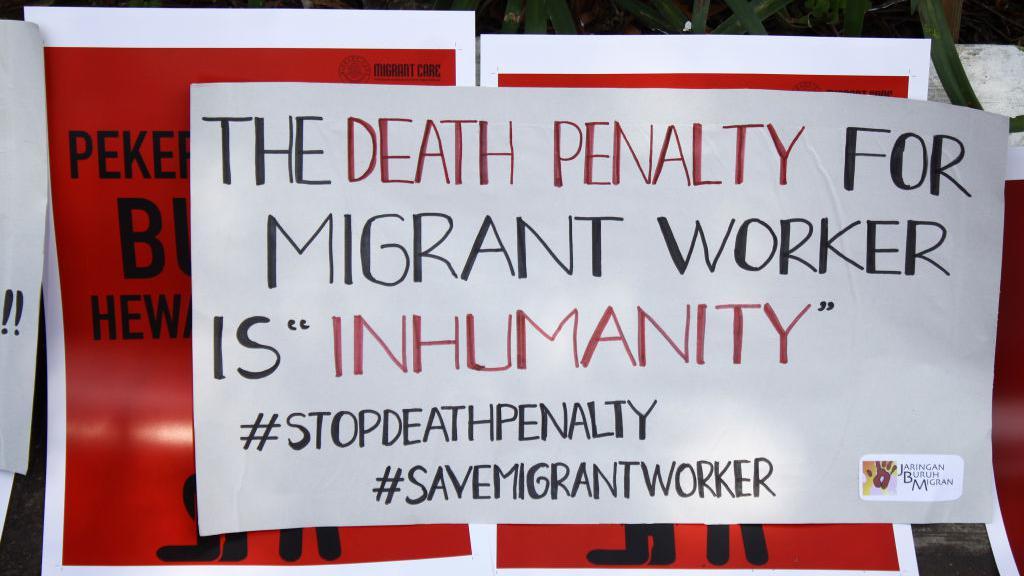 MIGRANT CARE
THE DEATH PENALTY FOR
MIGRANT WORKER
IS “INHUMANITY”
#STOPDEATHPENALTY
#SAVEMIGRANTWORKER
JARINGAN
BURUH
MIGRAN
!!